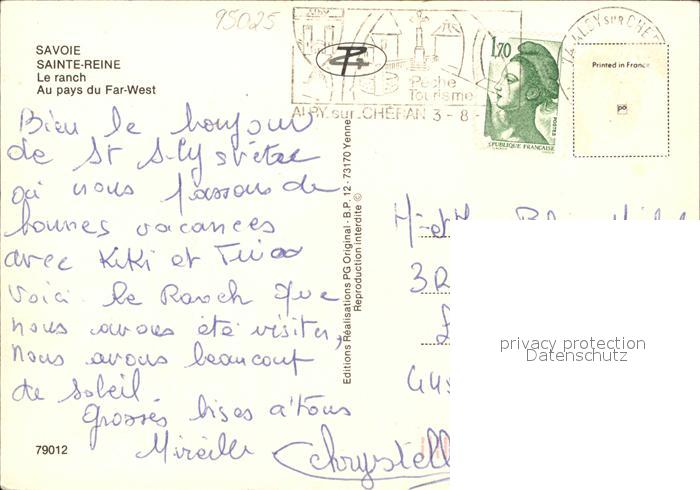 95025
SAVOIE
SAINTE-REINE
Le ranch
Au pays du Far-West
Pêche
Tourisme
ALBY sur CHERAN 3 - 8
1,70
POSTES
REPUBLIQUE FRANÇAISE
ALBY SUR CHER
Printed in France
Bien le bonjour
de St
où nous passons de
bonnes vacances
avec Kiki et
Voici le Ranch que
nous avons été visiter,
Nous avons beaucoup
de soleil.
Grosses bises à tous
Mireille Chrystell
Editions Réalisations PG Original - B.P. 12 - 73170 Yenne
Reproduction interdite ©
privacy protection
Datenschutz
79012